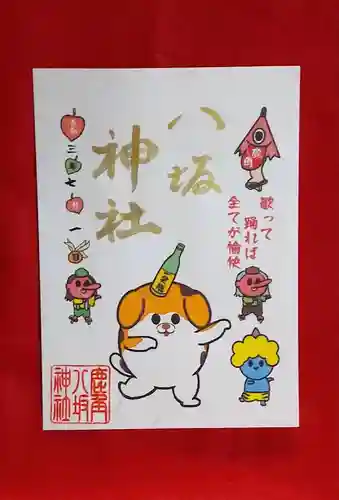 八坂
神社
歌って
踊れば
全てが愉快
三
七
一
鹿角
八坂
神社